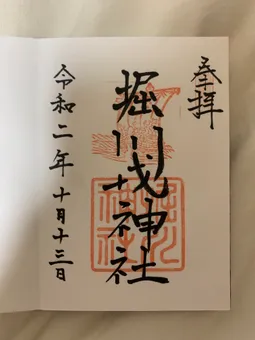 奉拝
堀川戎神社
令和二年十月十三日